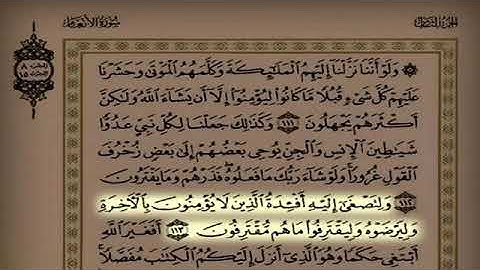 الجزء الثامن
سورة الأنعام
الحزب ١٥
۞ وَلَوْ أَنَّنَا نَزَّلْنَا إِلَيْهِمُ الْمَلَٰٓئِكَةَ وَكَلَّمَهُمُ الْمَوْتَىٰ وَحَشَرْنَا
عَلَيْهِمْ كُلَّ شَىْءٍ قُبُلًا مَّا كَانُوا لِيُؤْمِنُوٓا إِلَّآ أَن يَشَآءَ اللَّهُ وَلَٰكِنَّ
أَكْثَرَهُمْ يَجْهَلُونَ ١١١ وَكَذَٰلِكَ جَعَلْنَا لِكُلِّ نَبِىٍّ عَدُوًّا
شَيَٰطِينَ الْإِنسِ وَالْجِنِّ يُوحِى بَعْضُهُمْ إِلَىٰ بَعْضٍ زُخْرُفَ
الْقَوْلِ غُرُورًا وَلَوْ شَآءَ رَبُّكَ مَا فَعَلُوهُ فَذَرْهُمْ وَمَا يَفْتَرُونَ
١١٢ وَلِتَصْغَىٰٓ إِلَيْهِ أَفْـِٔدَةُ الَّذِينَ لَا يُؤْمِنُونَ بِالْءَاخِرَةِ
وَلِيَرْضَوْهُ وَلِيَقْتَرِفُوا مَا هُم مُّقْتَرِفُونَ ١١٣ أَفَغَيْرَ اللَّهِ
أَبْتَغِى حَكَمًا وَهُوَ الَّذِىٓ أَنزَلَ إِلَيْكُمُ الْكِتَٰبَ مُفَصَّلًا